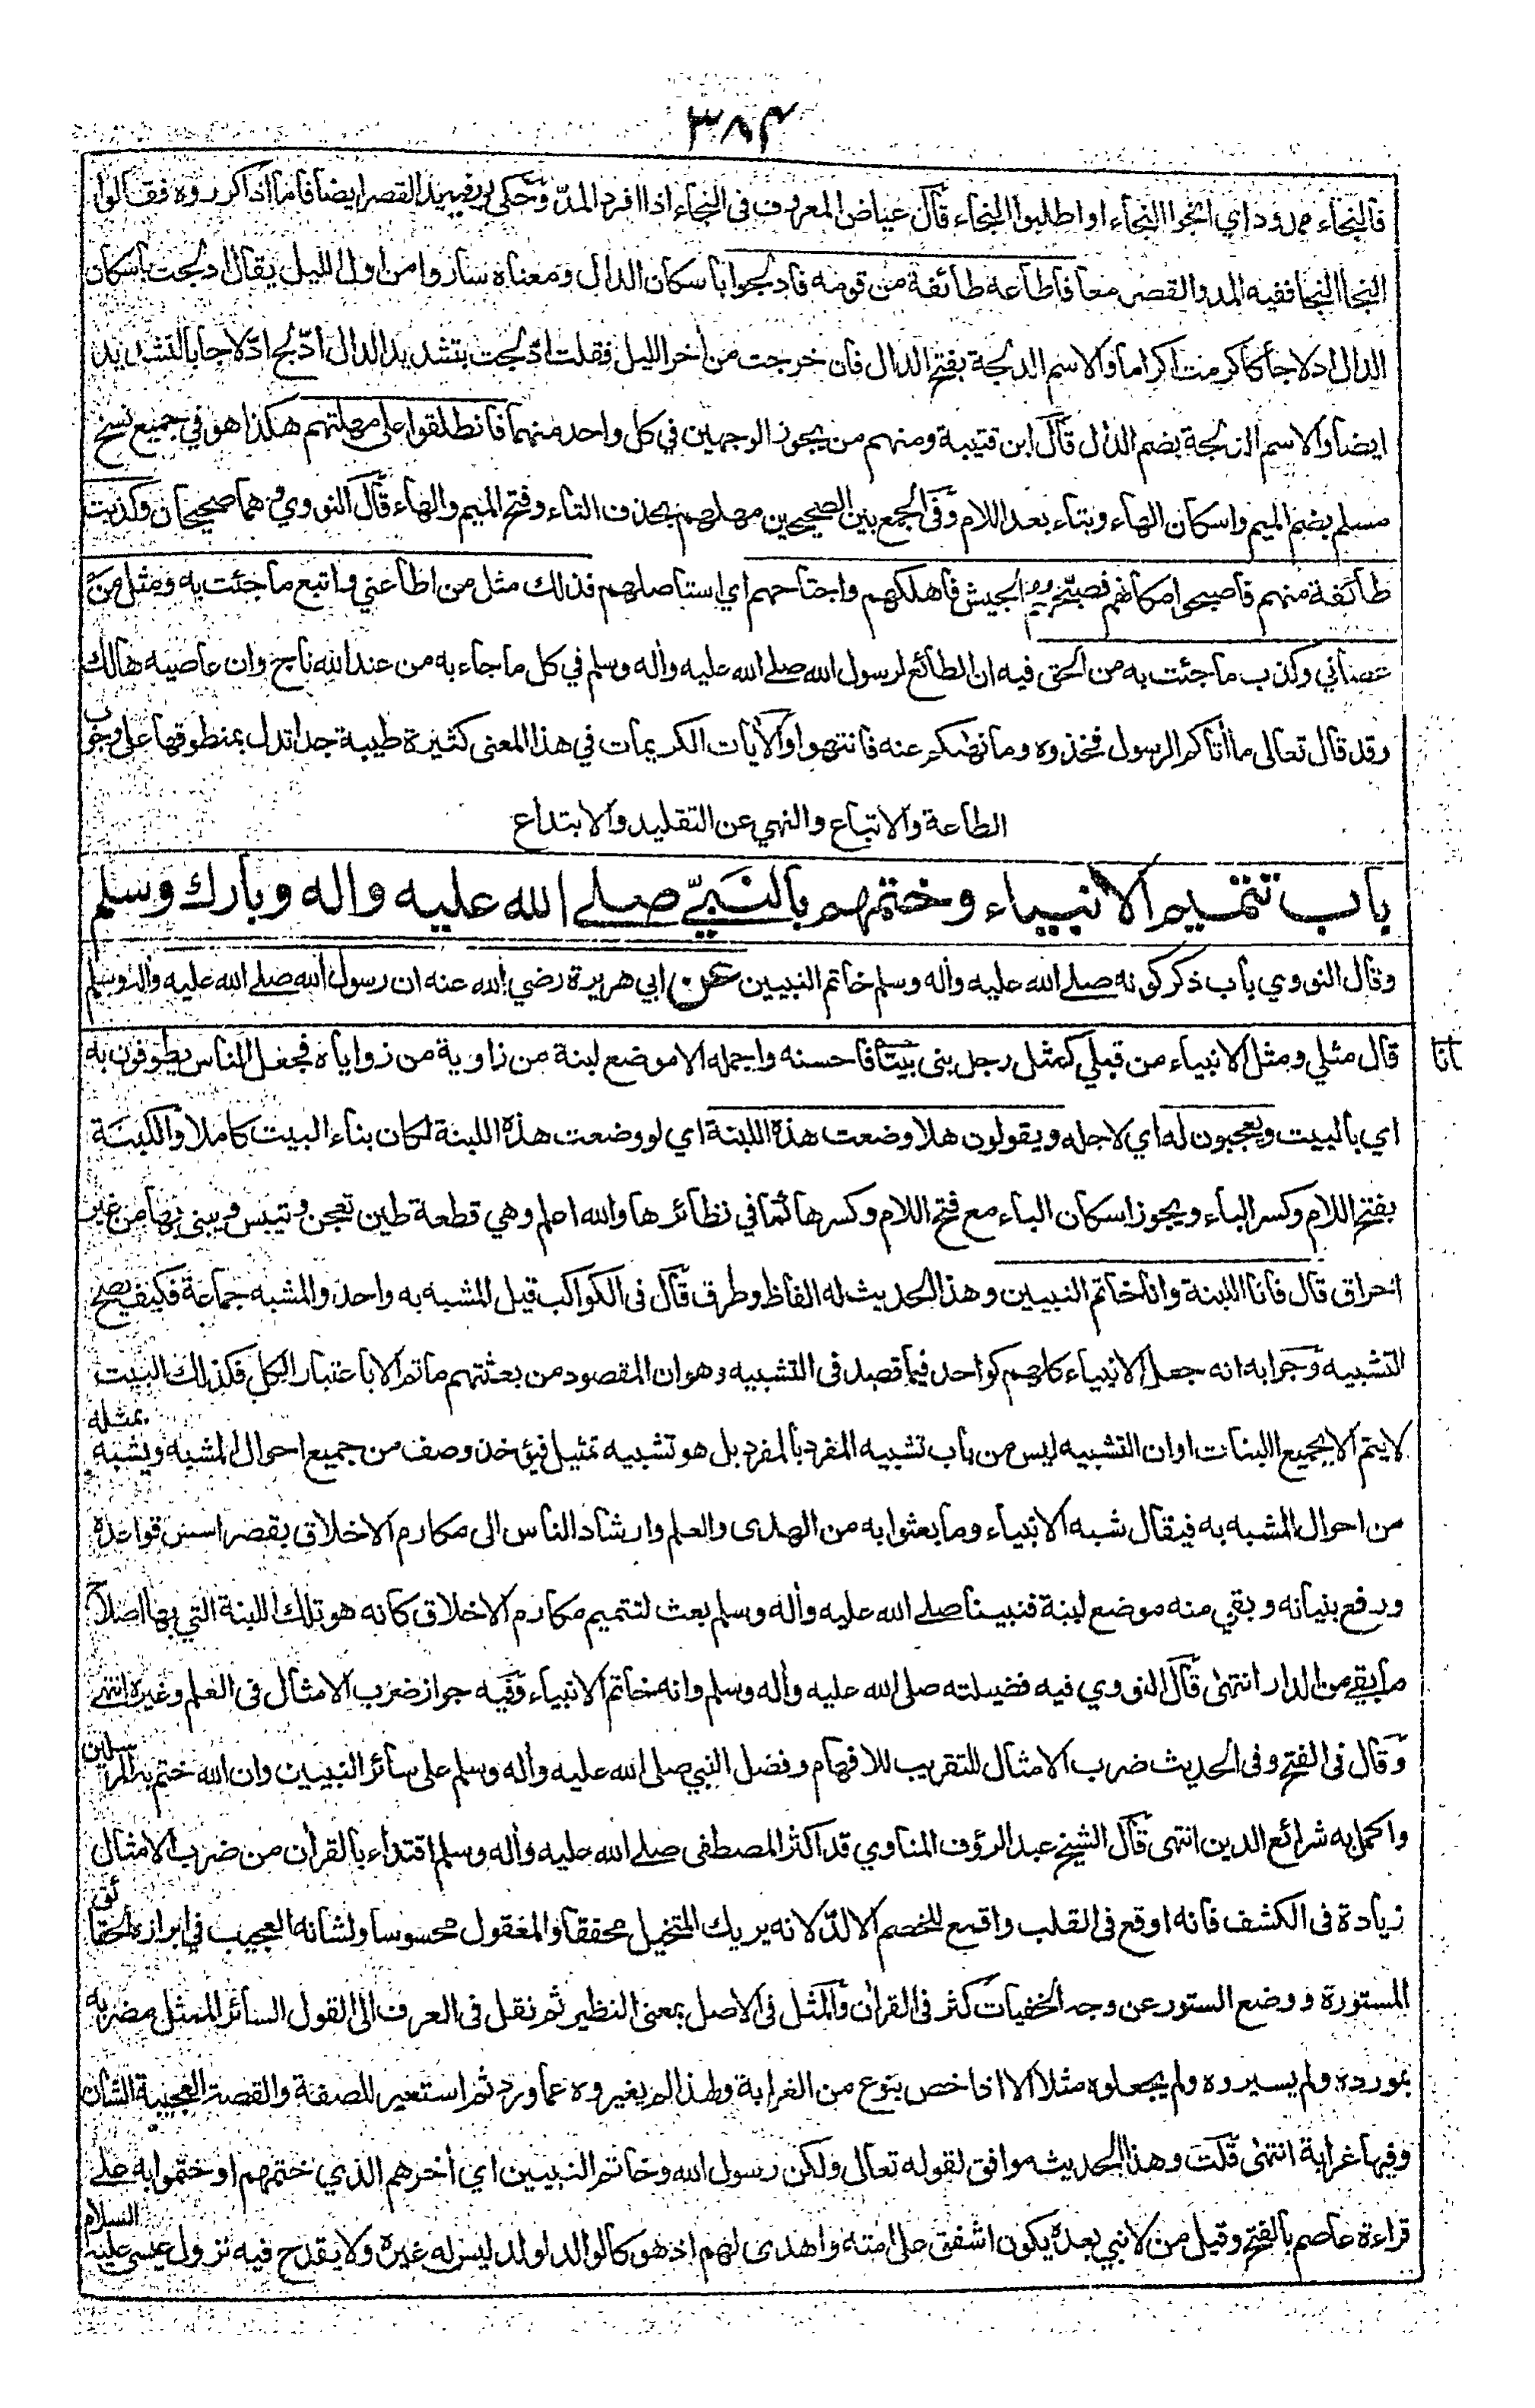 ٣٨٤
فالنجاء ممدود اي انجوا النجاء او اطلبوا النجاء قال عياض المعروف في النجاء اذا افرد المدّ وحكى ابو زيد القصر ايضا فاما اذا كرروه فقالوا
النجا النجا ففيه المد والقصر معا فاطاعه طائفة من قومه فادلجوا باسكان الدال ومعناه ساروا من اول الليل يقال ادلجت باسكان
الدال ادلاجا كاكرمت اكراما والاسم الدلجة بفتح الدال فان خرجت من أخر الليل فقلت ادّلجت بتشديد الدال أدّلج ادّلاجا بالتشديد
ايضا والاسم الدلجة بضم الدال قال ابن قتيبة ومنهم من يجوز الوجهين في كل واحد منهما فانطلقوا على مهلتهم هكذا هو في جميع نسخ
مسلم بضم الميم واسكان الهاء وبتاء بعد اللام وفي الجمع بين الصحيحين مهلهم بحذف التاء وفتح الميم والهاء قال النووي وهما صحيحان وكذبت
طائفة منهم فاصبحوا مكانهم فصبّحهم الجيش فاهلكهم واجتاحهم اي استاصلهم فذلك مثل من اطاعني واتبع ما جئت به ومثل من
عصاني وكذب ما جئت به من الحق فيه ان الطائع لرسول الله صلى الله عليه وأله وسلم في كل ما جاء به من عند الله ناج وان عاصيه هالك
وقد قال تعالى ما أتاكم الرسول فخذوه وما نهٰىكم عنه فانتهوا والأيات الكريمات في هذا المعنى كثيرة طيبة جدا تدل بمنطوقها على وجوب
الطاعة والاتباع والنهي عن التقليد والابتداع
باب تتميم الانبياء وختمهم بالنَبيّ صلى الله عليه واله وبارك وسلم
وقال النووي باب ذكر كونه صلى الله عليه وأله وسلم خاتم النبيين عن ابي هريرة رضي الله عنه ان رسول الله صلى الله عليه وأله وسلم
قال مثلي ومثل الانبياء من قبلي كمثل رجل بنى بيتا فاحسنه واجمله الا موضع لبنة من زاوية من زواياه فجعل الناس يطوفون به
اي بالبيت ويعجبون له اي لاجله ويقولون هلا وضعت هذه اللبنة اي لو وضعت هذه اللبنة لكان بناء البيت كاملا واللبنة
بفتح اللام وكسر الباء ويجوز اسكان الباء مع فتح اللام وكسرها كما في نظائرها والله اعلم وهي قطعة طين تعجن وتيبس ويبنى بها من غير
احراق قال فانا اللبنة وانا خاتم النبيين وهذا الحديث له الفاظ وطرق قال في الكواكب قيل المشبه به واحد والمشبه جماعة فكيف يصح
التشبيه وجوابه انه جعل الانبياء كلهم كواحد فيما قصد في التشبيه وهو ان المقصود من بعثتهم ما تم الا باعتبار الكل فكذلك البيت
لا يتم الا بجميع اللبنات او ان التشبيه ليس من باب تشبيه المفرد بالمفرد بل هو تشبيه تمثيل فيؤخذ وصف من جميع احوال المشبه ويشبه بمثله
من احوال المشبه به فيقال شبه الانبياء وما بعثوا به من الهدى والعلم وارشاد الناس الى مكارم الاخلاق بقصر اسس قواعده
ورفع بنيانه وبقي منه موضع لبنة فنبينا صلى الله عليه وأله وسلم بعث لتتميم مكارم الاخلاق كانه هو تلك اللبنة التي بها اصلاح
ما بقي من الدار انتهٰى قال النووي فيه فضيلته صلى الله عليه وأله وسلم وانه خاتم الانبياء وفيه جواز ضرب الامثال في العلم وغيره انتهى
وقال في الفتح وفي الحديث ضرب الامثال للتقريب للافهام وفضل النبي صلى الله عليه وأله وسلم على سائر النبيين وان الله ختم به المرسلين
واكمل به شرائع الدين انتهى قال الشيخ عبد الرؤف المناوي قد اكثر المصطفى صلى الله عليه وأله وسلم اقتداء بالقرأن من ضرب الامثال
زيادة في الكشف فانه اوقع في القلب واقمع للخصم الالدّ لانه يريك المتخيل محققا والمعقول محسوسا ولشانه العجيب في ابرازه الحقائق
المستورة ووضع الستور عن وجه الخفيات كثر في القرأن والمثل في الاصل بمعنى النظير ثم نقل في العرف الى القول السائر الممثل مضربه
بمورده ولم يسيروه ولم يجعلوه مثلا الا اذا خص بنوع من الغرابة ولهذا لم يغيروه عما ورد ثم استعير للصفة والقصة العجيبة الشان
وفيها غرابة انتهٰى قلت وهذا الحديث موافق لقوله تعالى ولكن رسول الله وخاتم النبيين اي أخرهم الذي ختمهم او ختموا به على
قراءة عاصم بالفتح وقيل من لا نبي بعده يكون اشفق على امته واهدى لهم اذ هو كالوالد لولد ليس له غيره ولا يقدح فيه نزول عيسى عليه السلام